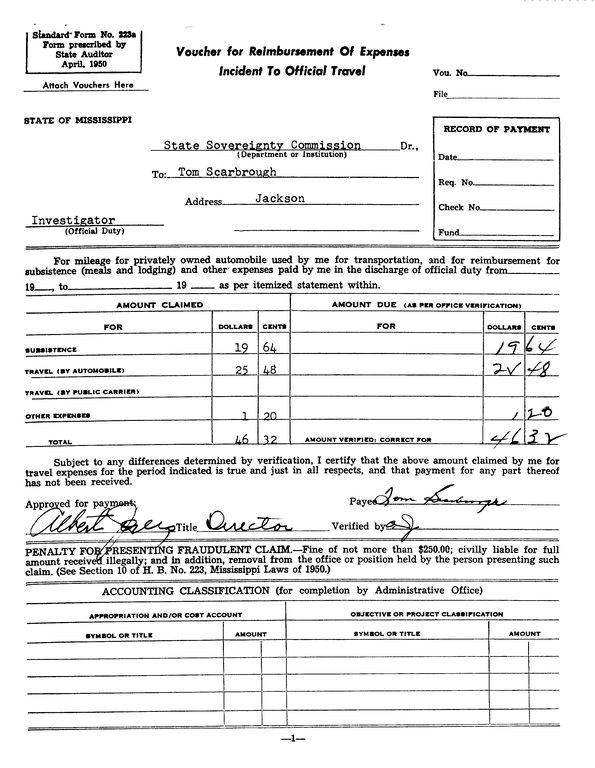 Standard Form No. 223a
Form prescribed by
State Auditor
April, 1950
Attach Vouchers Here
Voucher for Reimbursement Of Expenses
Incident To Official Travel
Vou. No.
File
STATE OF MISSISSIPPI
State Sovereignty Commission Dr.,
(Department or Institution)
To: Tom Scarbrough
Address Jackson
Investigator
(Official Duty)
RECORD OF PAYMENT
Date
Req. No.
Check No.
Fund
For mileage for privately owned automobile used by me for transportation, and for reimbursement for
subsistence (meals and lodging) and other expenses paid by me in the discharge of official duty from
19 , to 19 as per itemized statement within.
AMOUNT CLAIMED AMOUNT DUE (AS PER OFFICE VERIFICATION)
FOR DOLLARS CENTS FOR DOLLARS CENTS
SUBSISTENCE 19 64 19 64
TRAVEL (BY AUTOMOBILE) 25 48 48
TRAVEL (BY PUBLIC CARRIER)
OTHER EXPENSES 1 20 1 20
TOTAL 46 32 AMOUNT VERIFIED: CORRECT FOR 46 32
Subject to any differences determined by verification, I certify that the above amount claimed by me for
travel expenses for the period indicated is true and just in all respects, and that payment for any part thereof
has not been received.
Approved for payment: Payee Tom Scarbrough
Albert Title Director Verified by
PENALTY FOR PRESENTING FRAUDULENT CLAIM.—Fine of not more than $250.00; civilly liable for full
amount received illegally; and in addition, removal from the office or position held by the person presenting such
claim. (See Section 10 of H. B. No. 223, Mississippi Laws of 1950.)
ACCOUNTING CLASSIFICATION (for completion by Administrative Office)
APPROPRIATION AND/OR COST ACCOUNT OBJECTIVE OR PROJECT CLASSIFICATION
SYMBOL OR TITLE AMOUNT SYMBOL OR TITLE AMOUNT
—1—